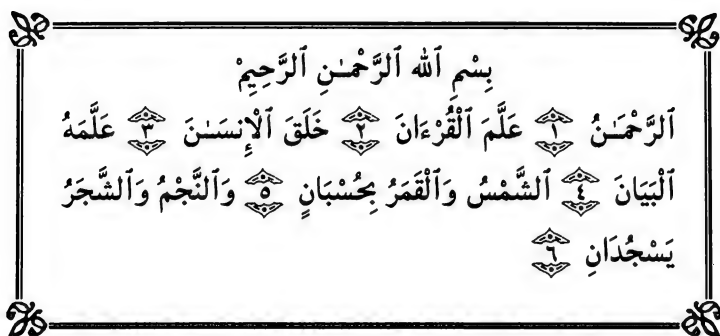 بِسْمِ ٱلله ٱلرَّحْمَـٰنِ ٱلرَّحِيمْ
ٱلرَّحْمَـٰنُ ١ عَلَّمَ ٱلْقُرْءَانَ ٢ خَلَقَ ٱلْإِنسَـٰنَ ٣ عَلَّمَهُ
ٱلْبَيَانَ ٤ ٱلشَّمْسُ وَٱلْقَمَرُ بِحُسْبَانٍ ٥ وَٱلنَّجْمُ وَٱلشَّجَرُ
يَسْجُدَانِ ٦